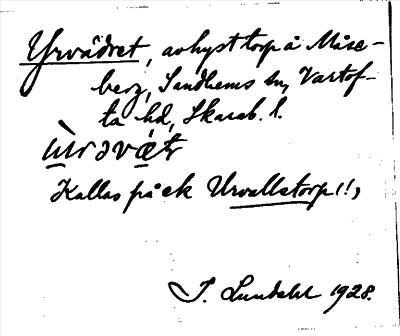 Yrvädret, avhyst torp å Måse-
berg, Sandhems sn, Vartof-
ta hd, Skarab. l.
ùrəvǽtr
Kallas på ek Urvallstorp(!),
J. Lundahl 1928.